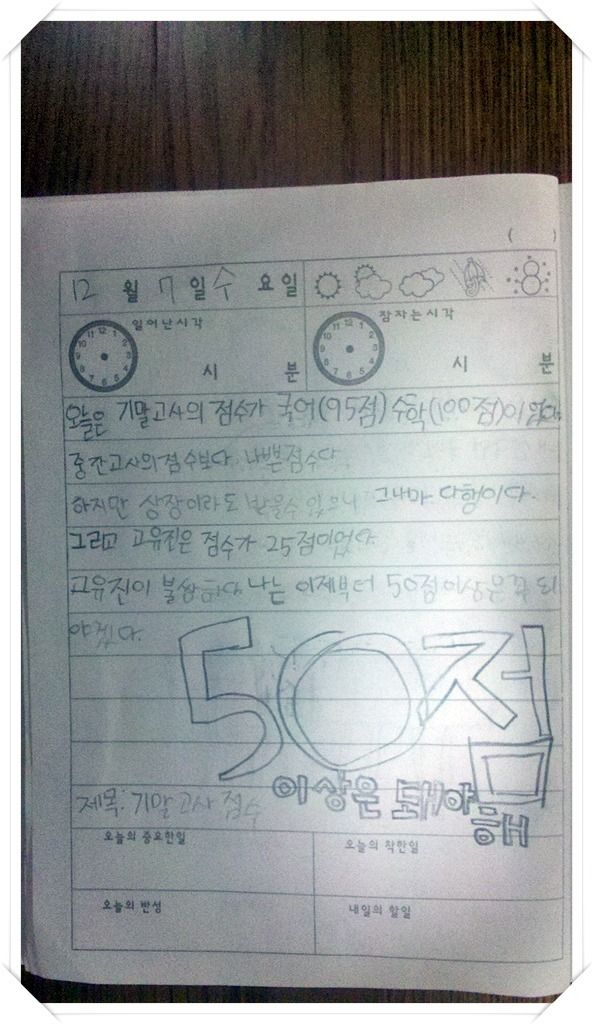 ( )
12 월 7 일 수 요일
일어난시각 잠자는시각
12 1 2 3 4 5 6 7 8 9 10 11 12 1 2 3 4 5 6 7 8 9 10 11
시 분 시 분
오늘은 기말고사의 점수가 국어(95점) 수학(100점)이 었다.
중간고사의 점수보다 나쁜점수다.
하지만 상장이라도 받을수 있으니 그나마 다행이다.
그리고 고유진은 점수가 25점이었다
고유진이 불쌍하다. 나는 이제부터 50점 이상은 꼭 되
야겠다.
50점
이상은 돼야
해
제목: 기말고사 점수
오늘의 중요한일 오늘의 착한일
오늘의 반성 내일의 할일